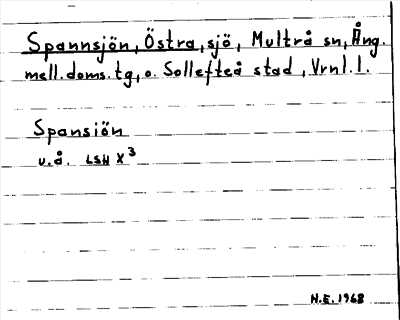 Spannsjön, Östra, sjö, Multrå sn, Ång.
mell. doms. tg, o. Sollefteå stad, Vrnl. l.
Spansiön
u.å. LSH X³
N.E. 1968